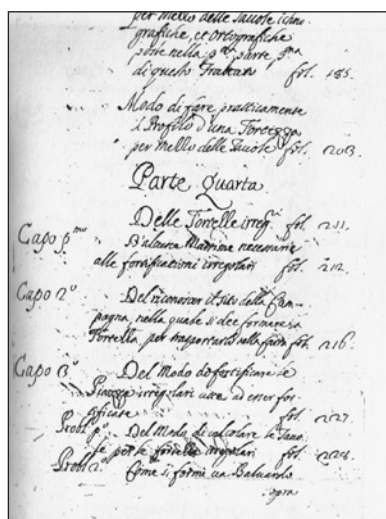 per mezzo delle Tauole ichno-
grafiche, et ortografiche
poste nella p.ma parte
di questo Trattato fol. 185.
Modo di fare pratticamente
il Profilo d'una Fortezza
per mezzo delle Tauole fol. 203.
Parte Quarta.
Delle Fortezze irreg.ri fol. 211.
Capo p.mo
D'alcune Massime necessarie
alle fortificationi irregolari fol. 212.
Capo 2.º Del riconoscer il sito della Cam-
pagna, nella quale si dee formare la
Fortezza, per trasportarlo nella carta fol. 216.
Capo 3.º Del Modo di fortificare le
Piazze irregolari fol. 227.
Probl. p.º Del Modo di calcolare le Tauo-
le per le fortezze irregolari fol. 228.
Probl. 2.º Come si formi un Baluardo
sopra